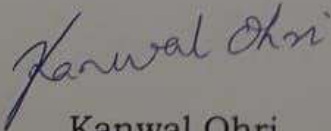 Kanwal Ohri
Kanwal Ohri